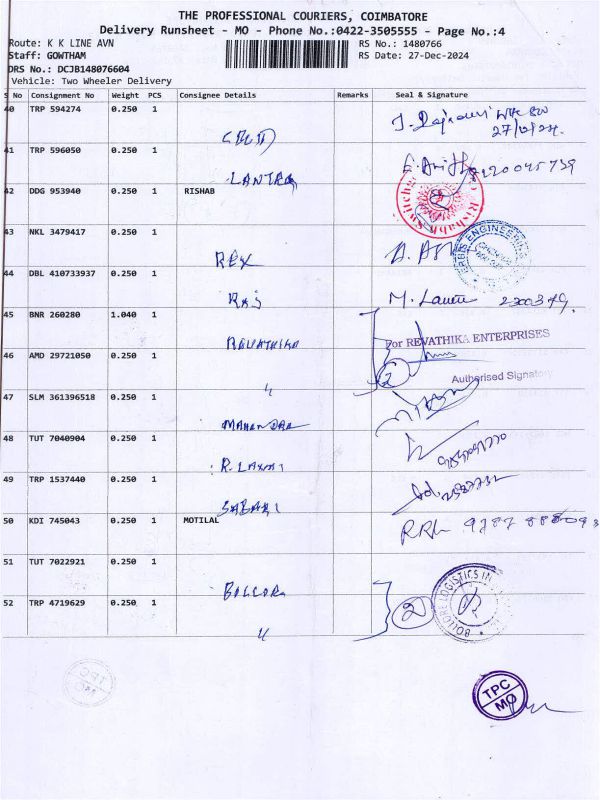 THE PROFESSIONAL COURIERS, COIMBATORE
Delivery Runsheet - MO - Phone No.:0422-3505555 - Page No.:4
Route: K K LINE AVN
RS No.: 1480766
Staff: GOWTHAM
RS Date: 27-Dec-2024
DRS No.: DCJB148076604
Vehicle: Two Wheeler Delivery
S No Consignment No Weight PCS Consignee Details Remarks Seal & Signature
40 TRP 594274 0.250 1
27/12/24.
41 TRP 596050 0.250 1
LANTRA
42 DDG 953940 0.250 1 RISHAB
43 NKL 3479417 0.250 1
REX
ENGINEERING
44 DBL 410733937 0.250 1
RAJ
45 BNR 260280 1.040 1
REVATHIKA
For REVATHIKA ENTERPRISES
46 AMD 29721050 0.250 1
2
Authorised Signatory
47 SLM 361396518 0.250 1
48 TUT 7040904 0.250 1
R. LAXMI
49 TRP 1537440 0.250 1
SABARI
50 KDI 745043 0.250 1 MOTILAL
51 TUT 7022921 0.250 1
52 TRP 4719629 0.250 1
2
BOLLORE LOGISTICS IN
TPC
MO
TPC
MO